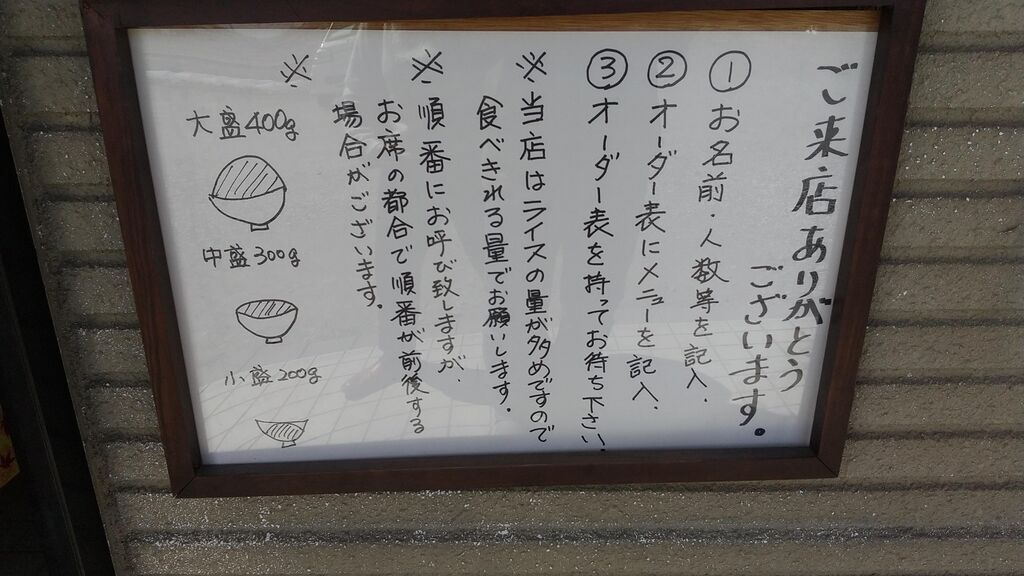 ご来店ありがとう
ございます。
① お名前・人数等を記入.
② オーダー表にメニューを記入.
③ オーダー表を持ってお待ち下さい.
※ 当店はライスの量が多めですので
食べきれる量でお願いします.
※ 順番にお呼び致しますが.
お席の都合で順番が前後する
場合がございます.
※
大盛400g
中盛300g
小盛200g